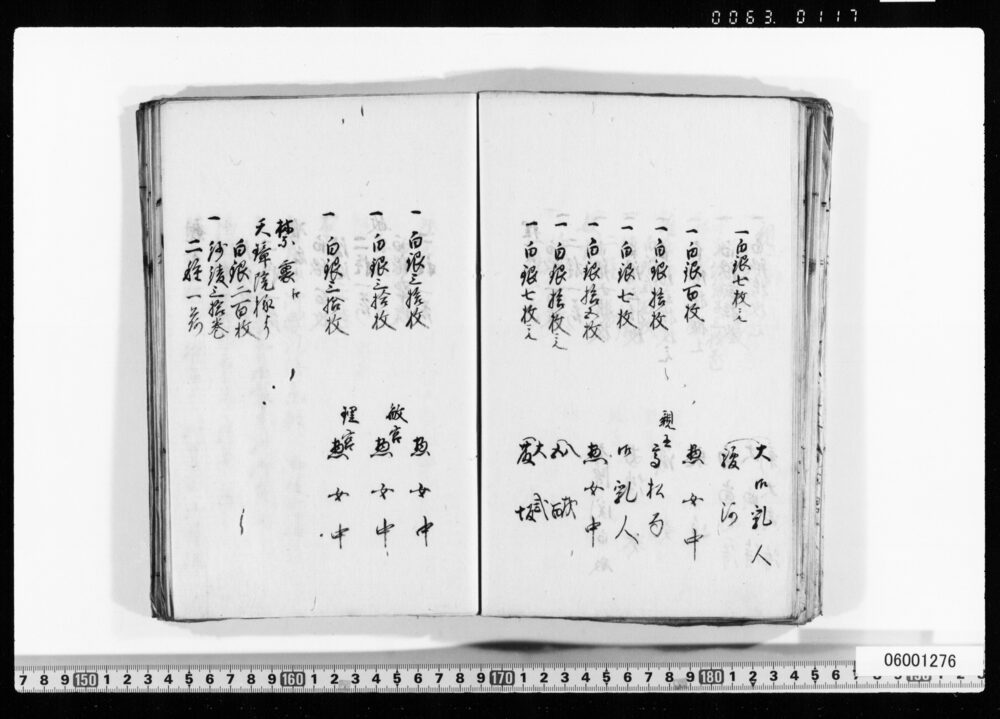 0063.0117
一白銀七枚ツヽ
大御乳人
駿河
一白銀百枚
惣女中
一白銀拾枚ツヽ
親王
高松局
一白銀七枚
御乳人
一白銀拾五枚
惣女中
一白銀拾枚ツヽ
一白銀七枚ツヽ
大
一白銀三拾枚
惣女中
一白銀三拾枚
敏宮
惣女中
一白銀三拾枚
理宮
惣女中
禁裏江
天璋院様より
白銀二百枚
一紗綾三拾巻
二種一荷
7 8 9 150 1 2 3 4 5 6 7 8 9 160 1 2 3 4 5 6 7 8 9 170 1 2 3 4 5 6 7 8 9 180 1 2 3 4 5 6
06001276